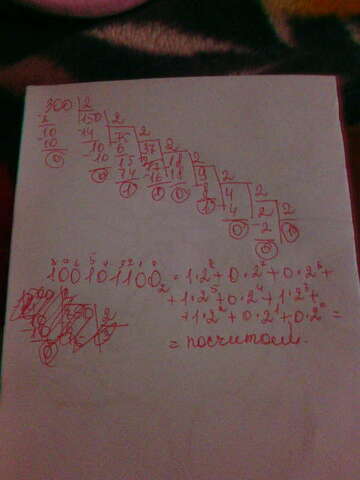 300 2
2 150 2
10 14 75 2
10 10 6 37 2
0 10 15 2 18 2
0 14 18 9 2
1 16 0 8 4 2
1 4 2 2
0 2 1
0
8 7 6 5 4 3 2 1 0
100101100₂ = 1·2⁸ + 0·2⁷ + 0·2⁶ +
+ 1·2⁵ + 0·2⁴ + 1·2³ +
+ 1·2² + 0·2¹ + 0·2⁰ =
= посчитаем.